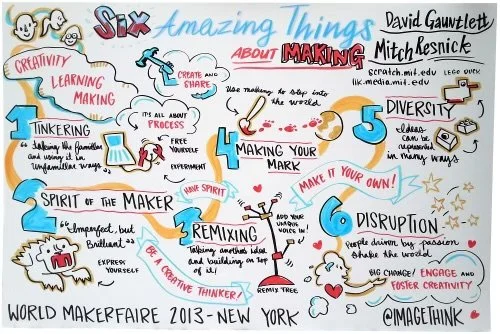 Six Amazing Things
ABOUT MAKING
David Gauntlett
Mitch Resnick
scratch.mit.edu
llk.media.mit.edu
LEGO DUCK
CREATIVITY
LEARNING
MAKING
CREATE AND
SHARE
IT'S ALL ABOUT
PROCESS
1
TINKERING
"taking the familiar
and using it in
unfamiliar ways"
FREE
YOURSELF
EXPERIMENT
2
SPIRIT OF THE MAKER
"Imperfect, but
Brilliant"
EXPRESS
YOURSELF
HAVE SPIRIT
3
REMIXING
Taking anothers idea
and building on top
of it!
BE A CREATIVE THINKER!
ADD YOUR
UNIQUE
VOICE IN!
REMIX TREE
Use making to step into
the world
4
MAKING YOUR
MARK
MAKE IT YOUR OWN!
5
DIVERSITY
Ideas
can be
represented
in many ways
6
DISRUPTION
People driven by passion
shake the world
BIG CHANGE! ENGAGE AND
FOSTER CREATIVITY
WORLD MAKERFAIRE 2013 - NEW YORK
@IMAGETHINK